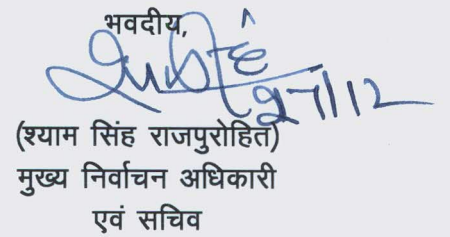 भवदीय,
27/12
(श्याम सिंह राजपुरोहित)
मुख्य निर्वाचन अधिकारी
एवं सचिव